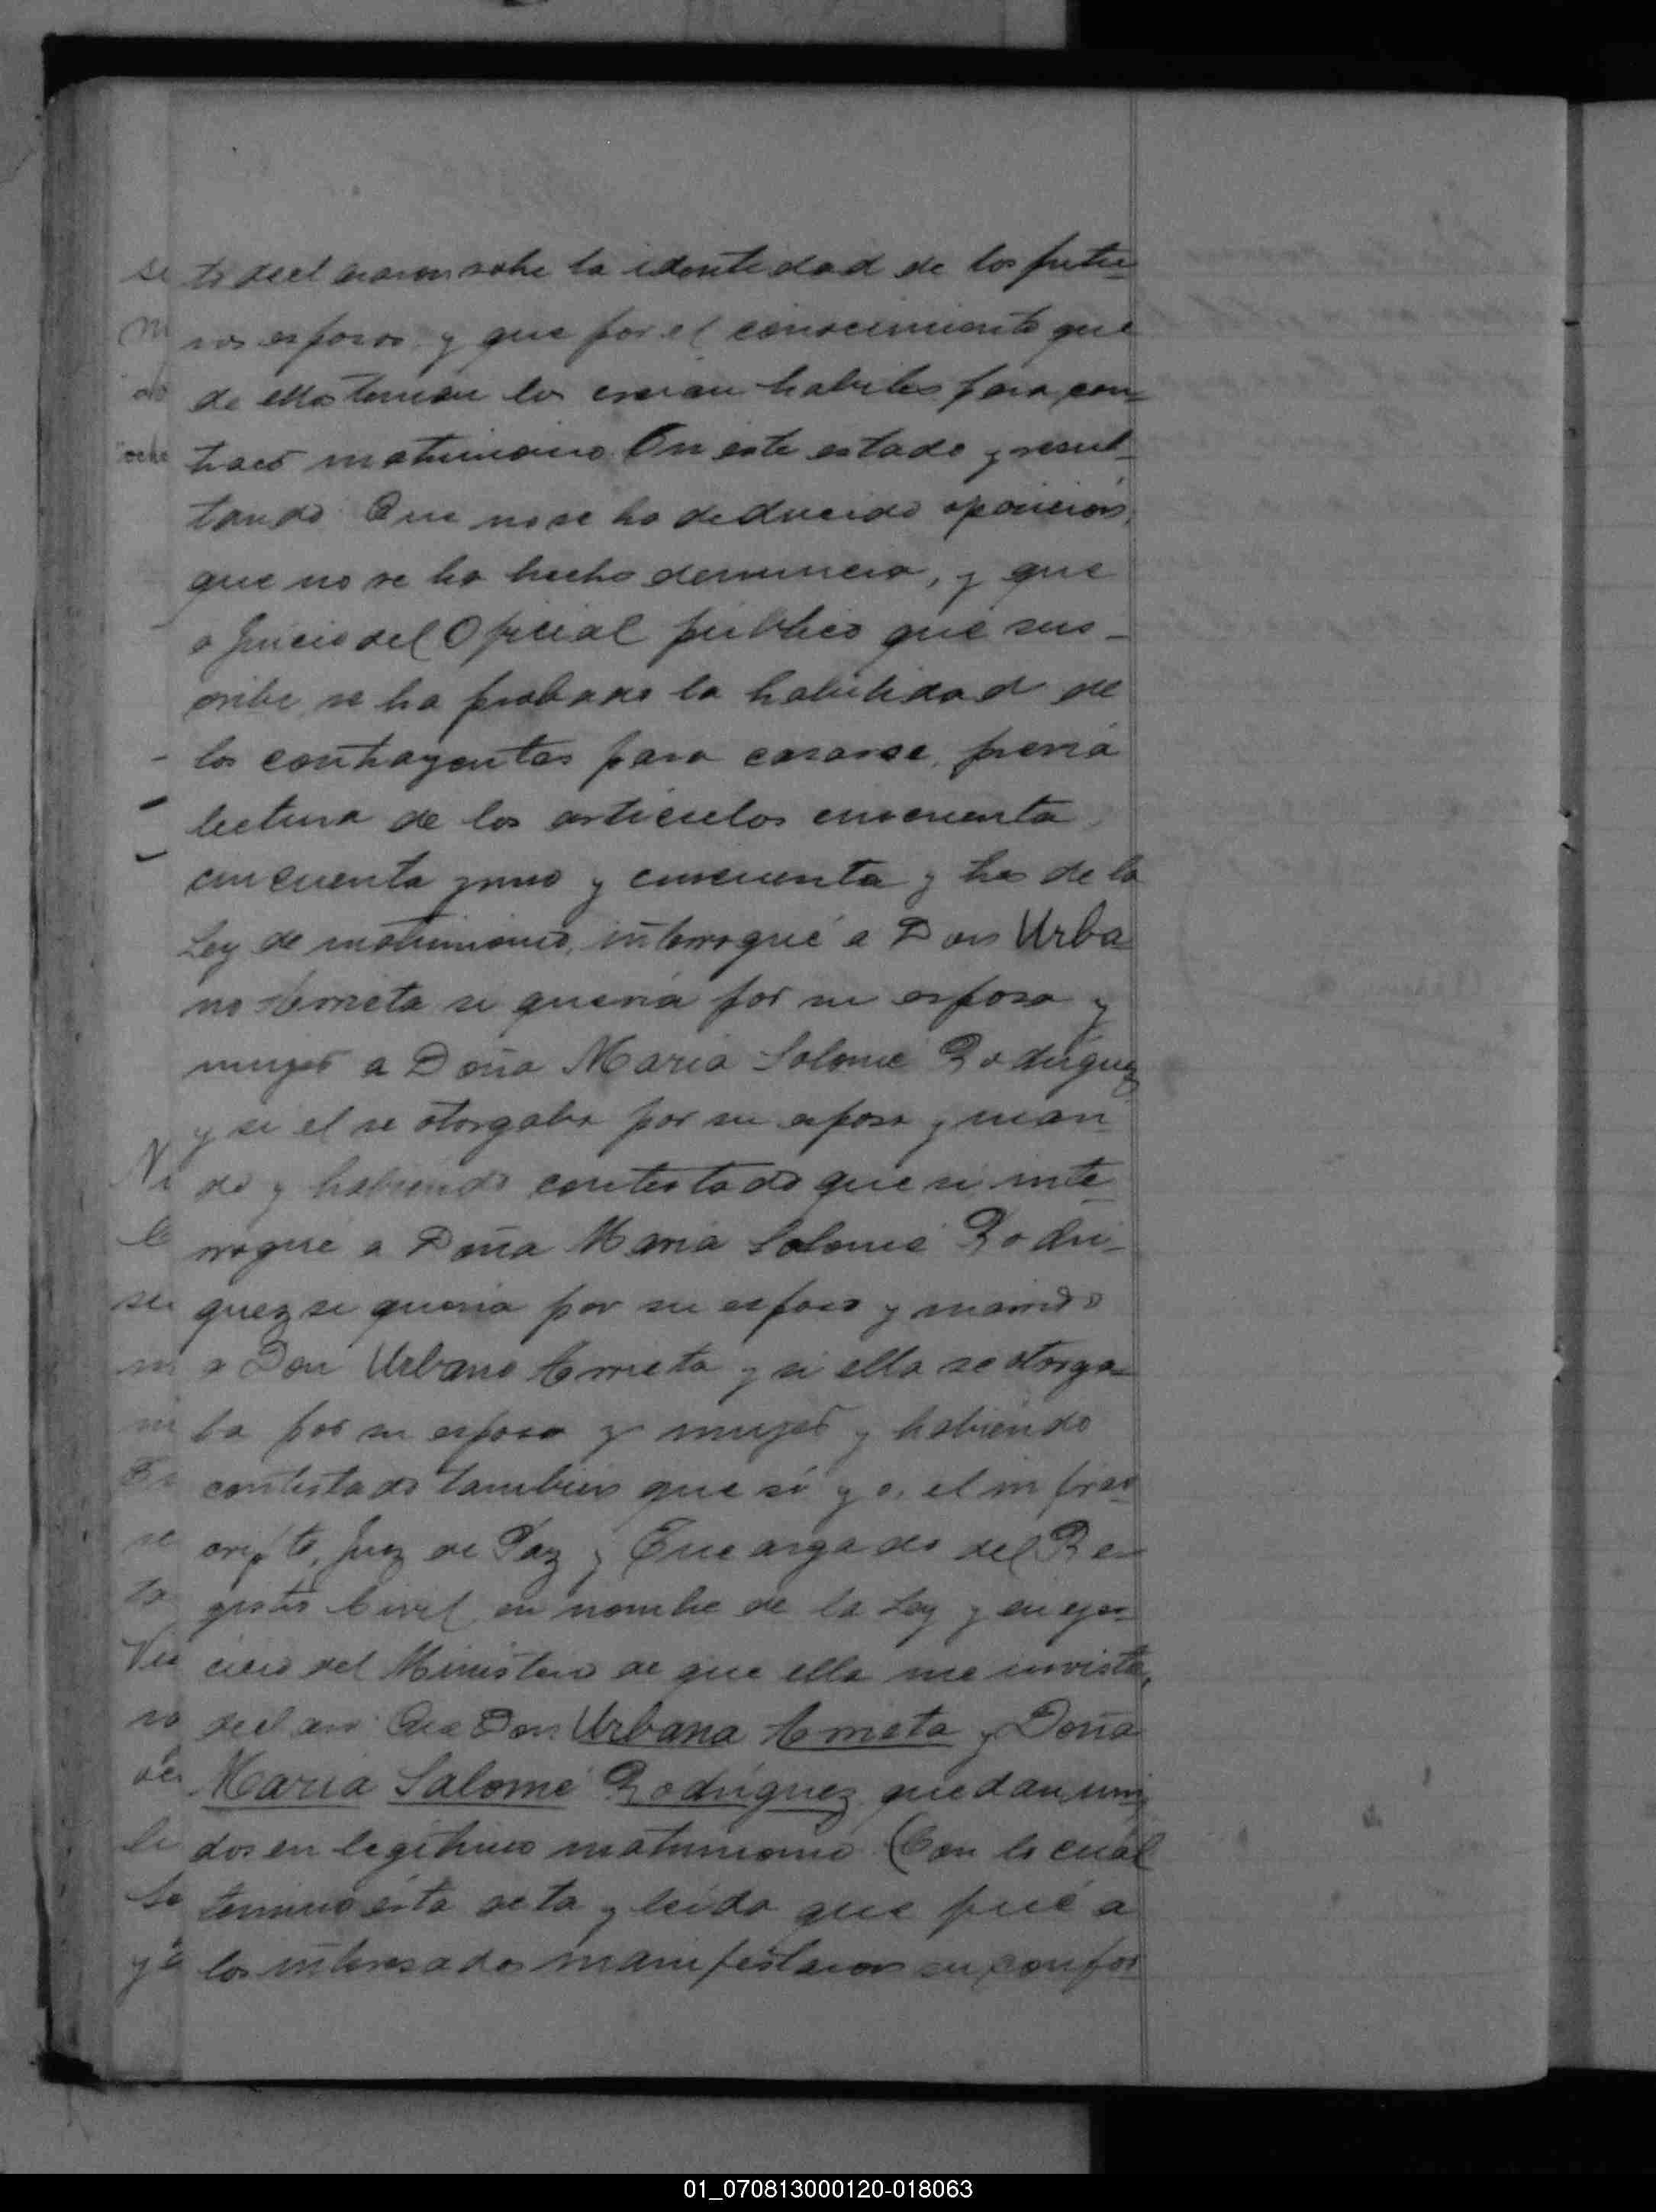 to declararon sobre la identidad de los futu-
ros esposos, y que por el conocimiento que
de ellos tenian los creian habiles para con-
traer matrimonio. En este estado y resul-
tando: Que no se ha deducido oposicion,
que no se ha hecho denuncia, y que
a juicio del Oficial público que sus-
cribe, se ha probado la habilidad de
los contrayentes para casarse, previa
lectura de los articulos cincuenta,
cincuenta y uno y cincuenta y tres de la
Ley de matrimonio, interrogué a Don Urba
no Arrieta si queria por su esposa y
mujer a Doña Maria Salomé Rodriguez
y si el se otorgaba por su esposo y mari
do y habiendo contestado que si, inte-
rrogué a Doña Maria Salomé Rodri-
guez si queria por su esposo y marido
a Don Urbano Arrieta y si ella se otorga-
ba por su esposa y mujer y habiendo
contestado tambien que sí yo, el infras-
cripto, Juez de Paz y Encargado del Re-
gistro Civil en nombre de la Ley y en ejer-
cicio del Ministerio de que ella me inviste,
declaro: Que Don Urbano Arrieta y Doña
Maria Salomé Rodriguez quedan uni-
dos en legitimo matrimonio. Con lo cual
terminó ésta acta y leida que fué a
los interesados manifestaron su confor
01_070813000120-018063